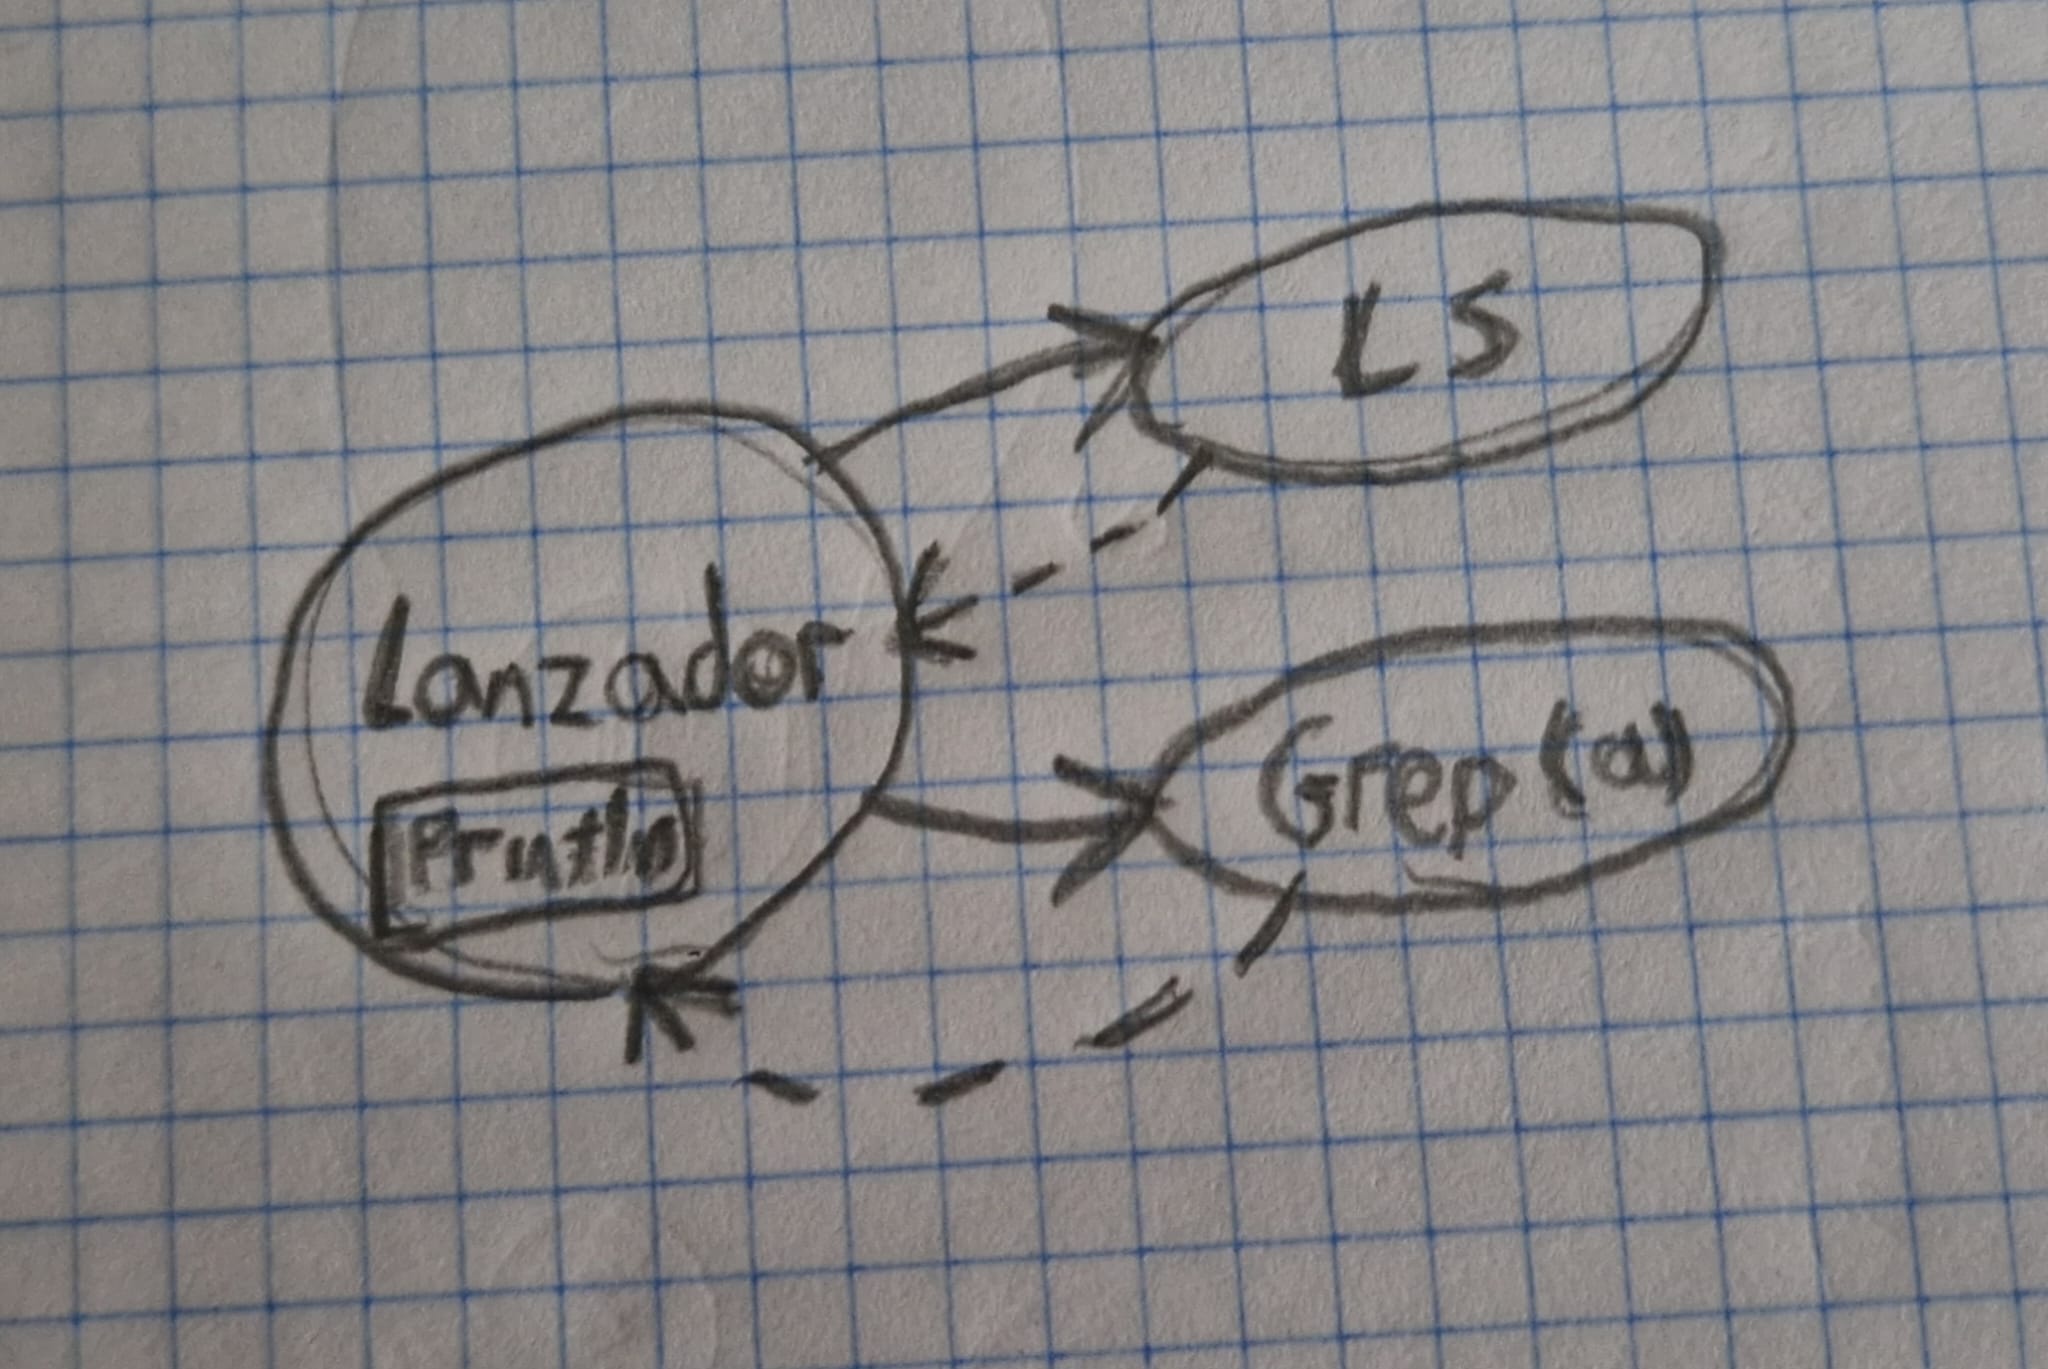 LS
Lanzador
Println
Grep (a)